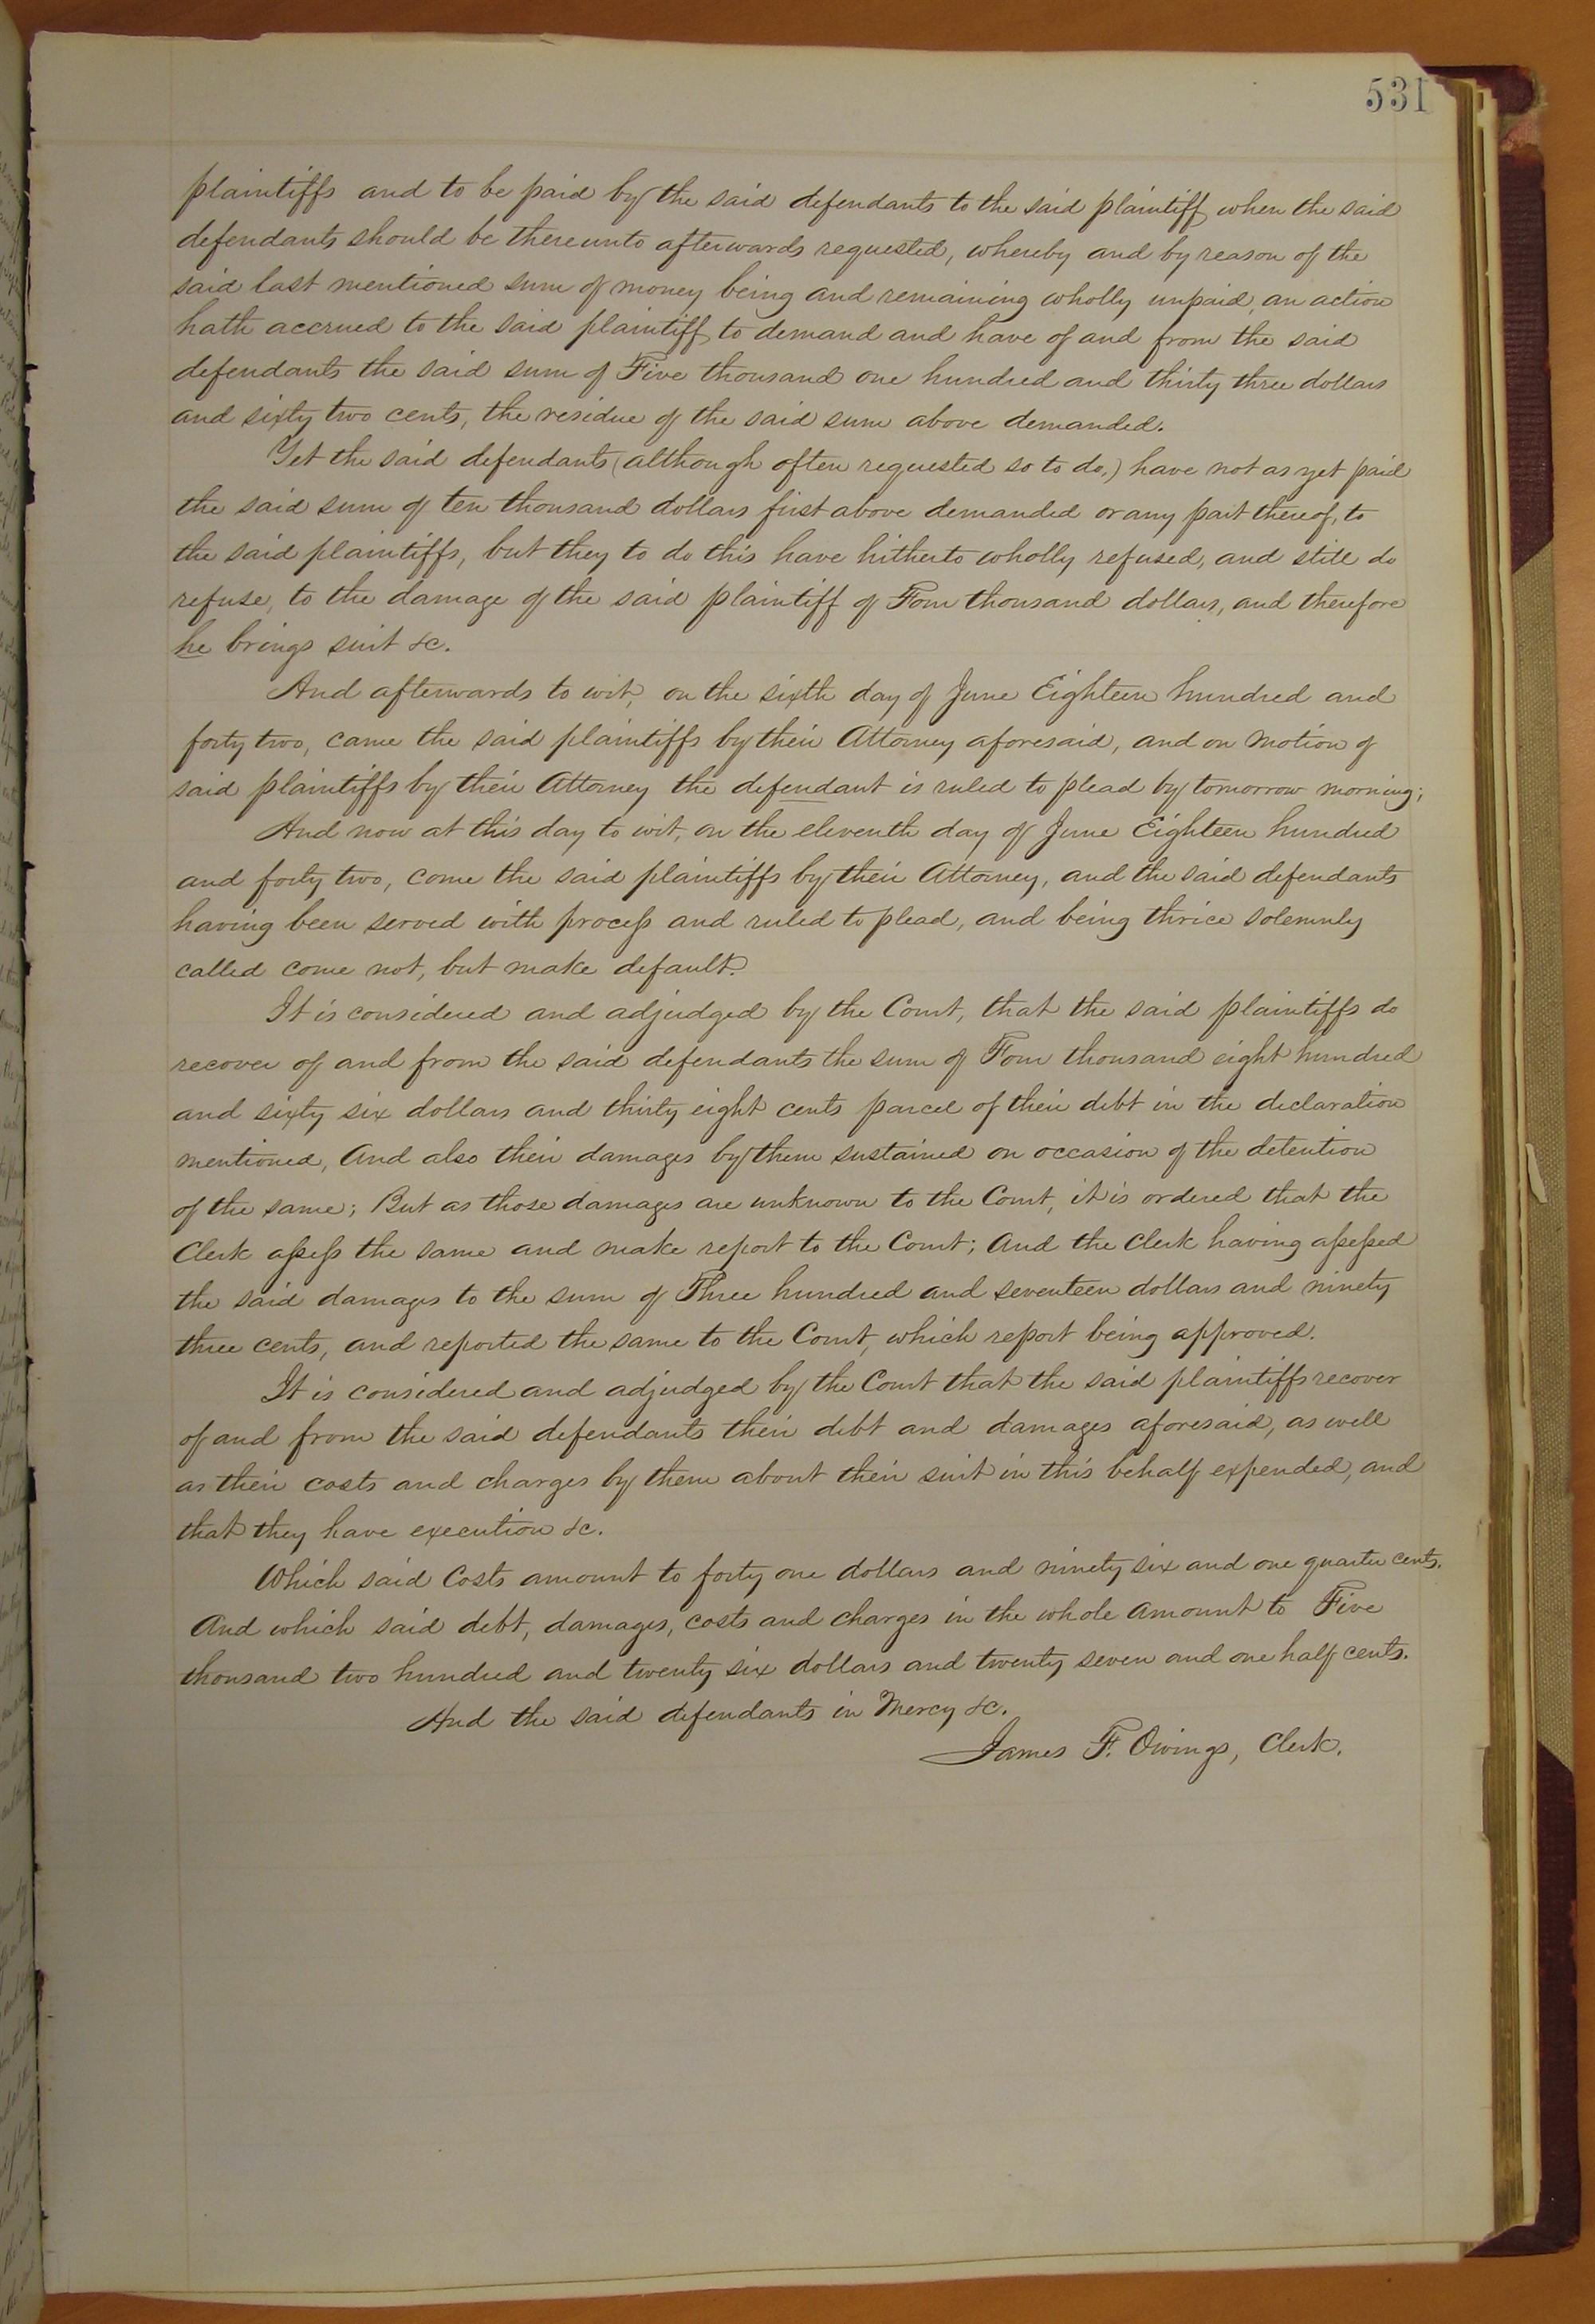 531
plaintiffs and to be paid by the said defendants to the said plaintiff when the said
defendants should be thereunto afterwards requested, whereby and by reason of the
said last mentioned sum of money being and remaining wholly unpaid, an action
hath accrued to the said plaintiff to demand and have of and from the said
defendants the said sum of Five thousand one hundred and thirty three dollars
and sixty two cents, the residue of the said sum above demanded.
Yet the said defendants (although often requested so to do,) have not as yet paid
the said sum of ten thousand dollars first above demanded or any part thereof, to
the said plaintiffs, but they to do this have hitherto wholly refused, and still do
refuse, to the damage of the said plaintiff of Four thousand dollars, and therefore
he brings suit &c.
And afterwards to wit, on the sixth day of June Eighteen hundred and
forty two, came the said plaintiffs by their Attorney aforesaid, and on motion of
said plaintiffs by their Attorney the defendant is ruled to plead by tomorrow morning;
And now at this day to wit, on the eleventh day of June Eighteen hundred
and forty two, come the said plaintiffs by their Attorney, and the said defendants
having been served with process and ruled to plead, and being thrice solemnly
called come not, but make default.
It is considered and adjudged by the Court, that the said plaintiffs do
recover of and from the said defendants the sum of Four thousand eight hundred
and sixty six dollars and thirty eight cents parcel of their debt in the declaration
mentioned, And also their damages by them sustained on occasion of the detention
of the same; But as those damages are unknown to the Court, it is ordered that the
Clerk assess the same and make report to the Court; And the Clerk having assessed
the said damages to the sum of Three hundred and seventeen dollars and ninety
three cents, and reported the same to the Court, which report being approved.
It is considered and adjudged by the Court that the said plaintiffs recover
of and from the said defendants their debt and damages aforesaid, as well
as their costs and charges by them about their suit in this behalf expended, and
that they have execution &c.
Which said Costs amount to forty one dollars and ninety six and one quarter cents.
And which said debt, damages, costs and charges in the whole amount to Five
thousand two hundred and twenty six dollars and twenty seven and one half cents.
And the said defendants in Mercy &c.
James F. Owings, Clerk.